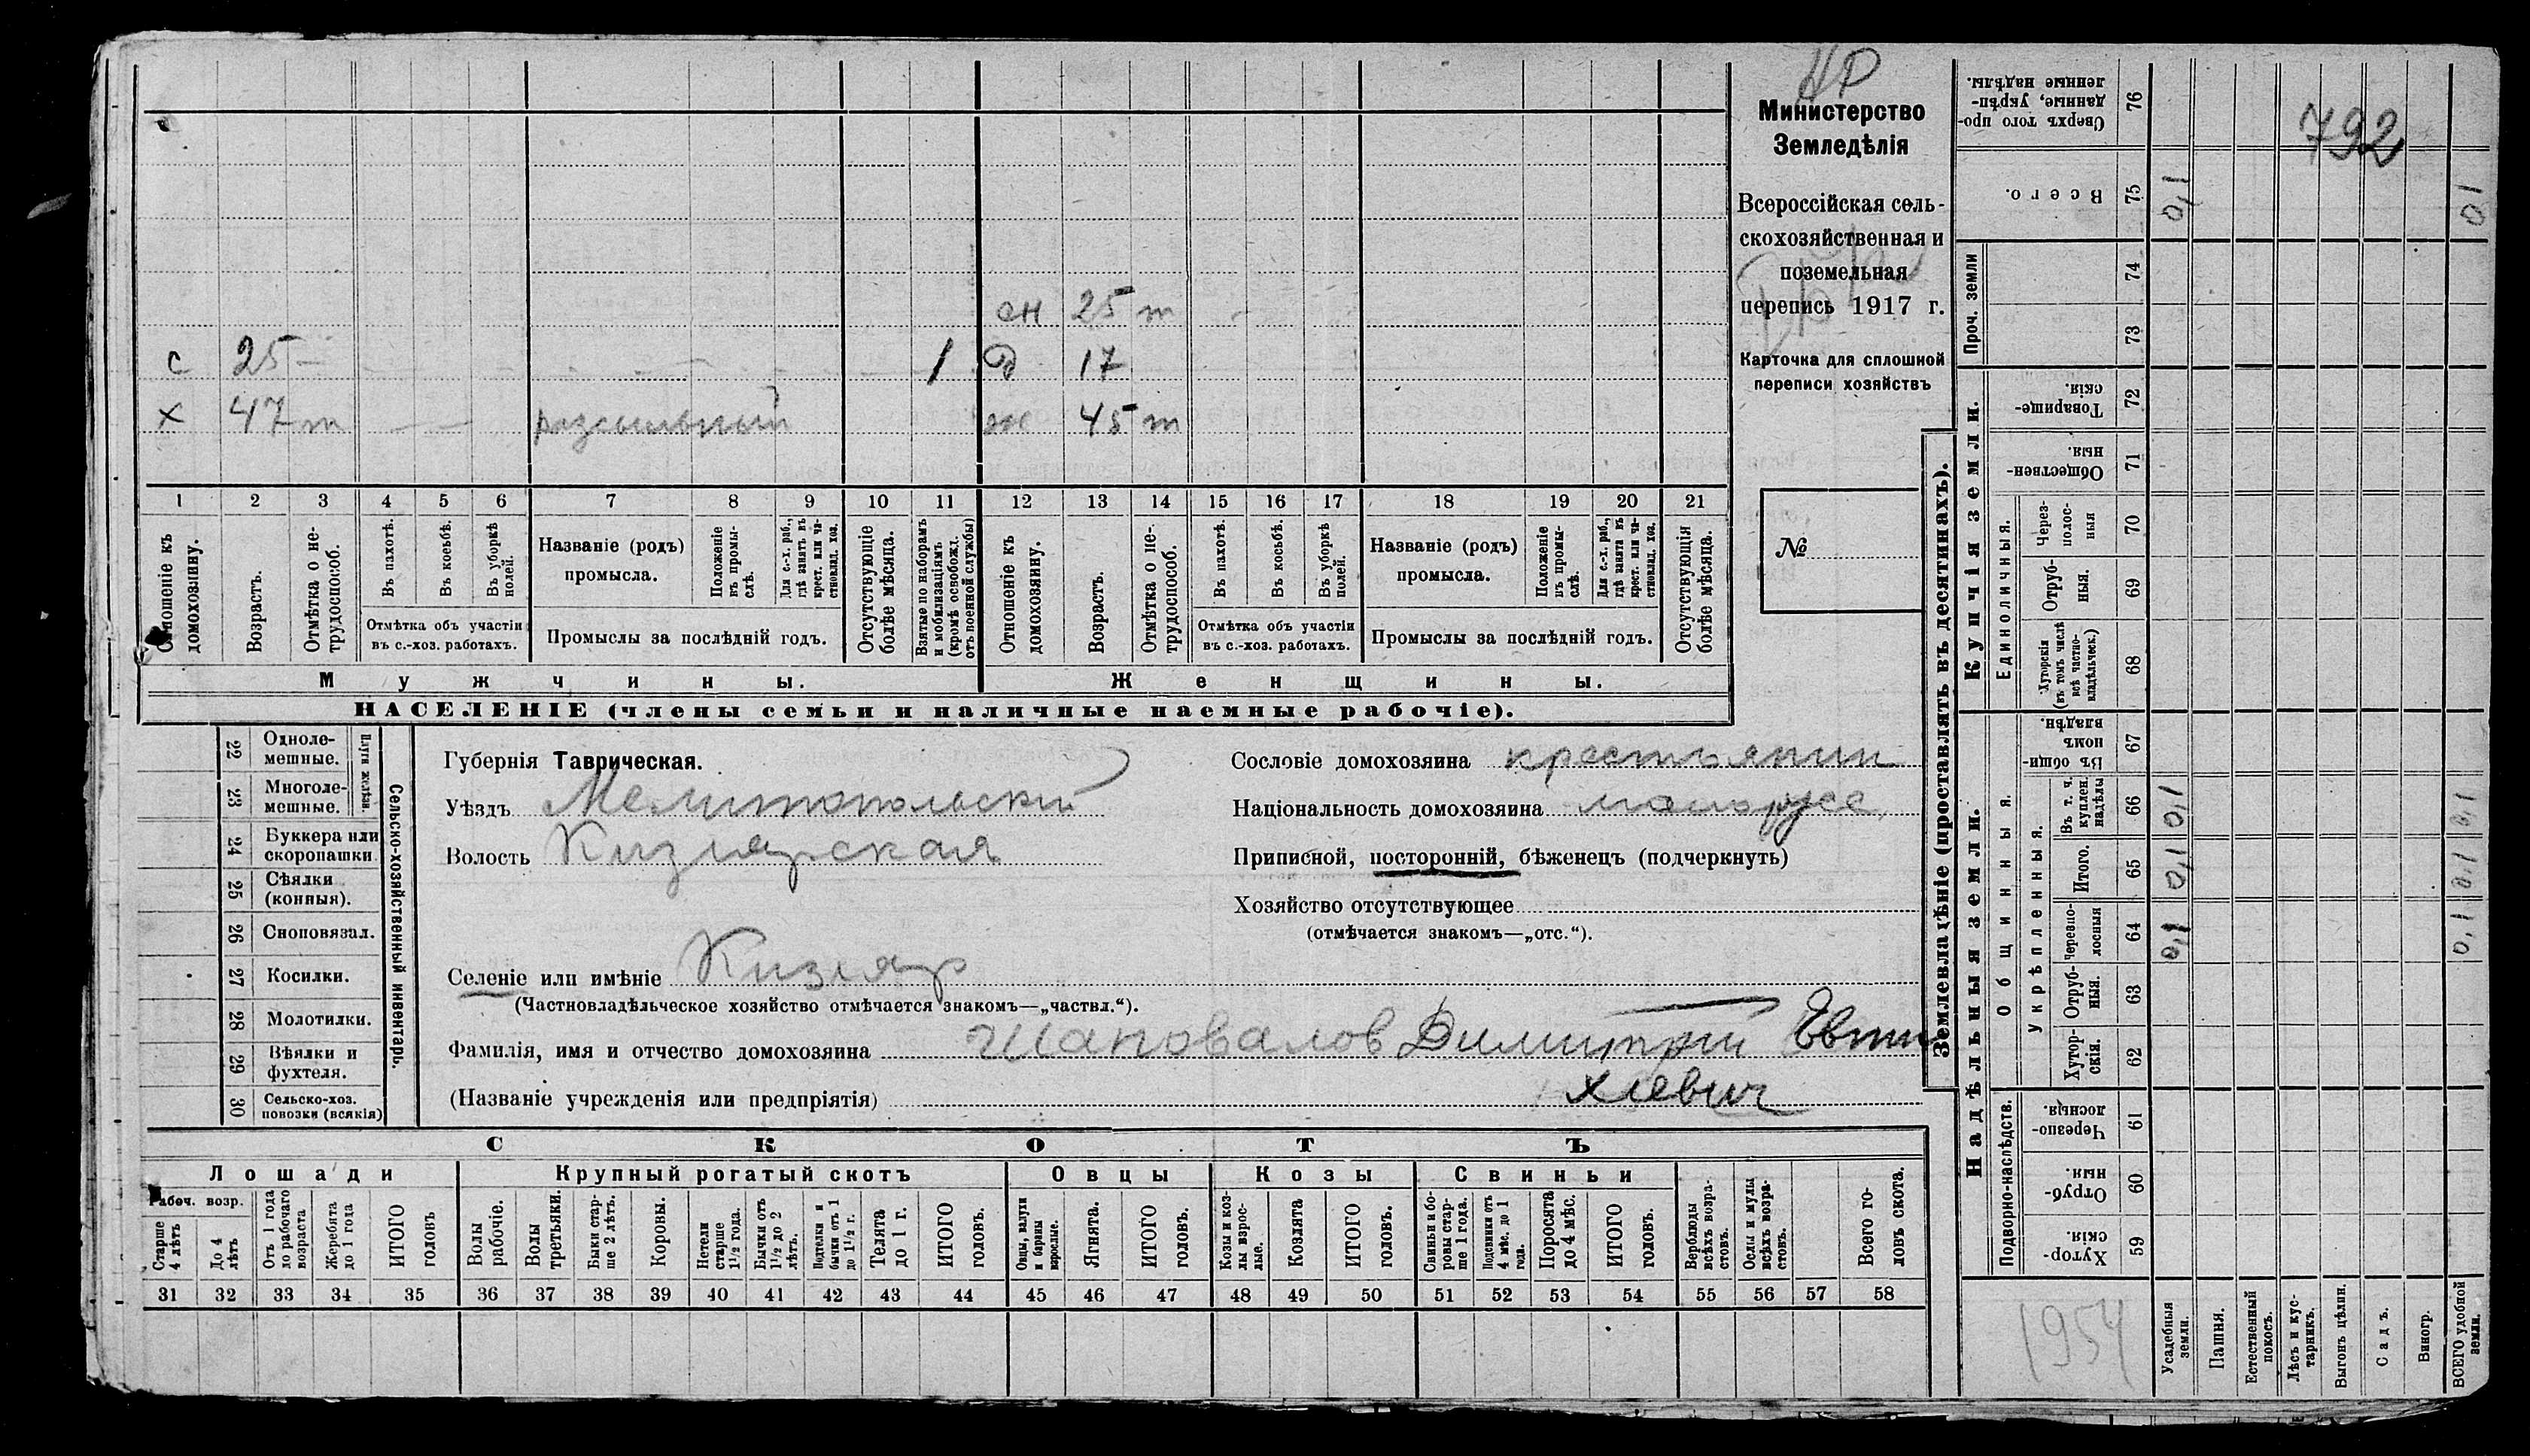 НР
Министерство
Земледѣлія
Всероссійская сель-
скохозяйственная и
поземельная
перепись 1917 г.
Карточка для сплошной
переписи хозяйствъ
№
792
сн 25 т
с 25 — 1 д 17
х 47 т — — розсыльный ж 45 т
1 2 3 4 5 6 7 8 9 10 11 12 13 14 15 16 17 18 19 20 21
Отношеніе къ домохозяину.
Возрастъ.
Отмѣтка о не-трудоспособ.
Въ пахотѣ.
Въ косьбѣ.
Въ уборкѣ полей.
Отмѣтка объ участіи
въ с.-хоз. работахъ.
Названіе (родъ)
промысла.
Положеніе въ промы-слѣ.
Для с.-х. раб., гдѣ занятъ въ крест. или ча-стновлад. хоз.
Промыслы за послѣдній годъ.
Отсутствующіе болѣе мѣсяца.
Взятые по наборамъ и мобилизаціямъ (кромѣ освобожд. отъ военной службы)
Отношеніе къ домохозяину.
Возрастъ.
Отмѣтка о не-трудоспособ.
Въ пахотѣ.
Въ косьбѣ.
Въ уборкѣ полей.
Отмѣтка объ участіи
въ с.-хоз. работахъ.
Названіе (родъ)
промысла.
Положеніе въ промы-слѣ.
Для с.-х. раб., гдѣ занята въ крест. или ча-стновлад. хоз.
Промыслы за послѣдній годъ.
Отсутствующія болѣе мѣсяца.
Мужчины. Женщины.
НАСЕЛЕНІЕ (члены семьи и наличные наемные рабочіе).
Сельско-хозяйственный инвентарь.
22 Одноле-мешные.
23 Многоле-мешные.
24 Буккера или скоропашки
25 Сѣялки (конныя).
26 Сноповязал.
27 Косилки.
28 Молотилки.
29 Вѣялки и фухтеля.
30 Сельско-хоз. повозки (всякія)
Губернія Таврическая.
Уѣздъ Мелитопольский
Волость Кизиярская
Селеніе или имѣніе Кизияр
(Частновладѣльческое хозяйство отмѣчается знакомъ—„частвл.“).
Сословіе домохозяина крестьянин
Національность домохозяина малорусс.
Приписной, посторонній, бѣженецъ (подчеркнуть)
Хозяйство отсутствующее
(отмѣчается знакомъ—„отс.“).
Фамилія, имя и отчество домохозяина Шаповалов Димитрий Евти
(Названіе учрежденія или предпріятія) хіевич
СКОТЪ
Лошади Крупный рогатый скотъ Овцы Козы Свиньи
Рабоч. возр.
Старше 4 лѣтъ
До 4 лѣтъ
Отъ 1 года до рабочаго возраста
Жеребята до 1 года
ИТОГО головъ
Волы рабочіе.
Волы третьяки.
Быки стар-ше 2 лѣтъ.
Коровы.
Нетели старше 1½ года.
Бычки отъ 1½ до 2 лѣтъ.
Подтелки и бычки отъ 1 до 1½ г.
Телята до 1 г.
ИТОГО головъ.
Овцы, валухи и бараны взрослые.
Ягнята.
ИТОГО головъ.
Козы и коз-лы взрос-лые.
Козлята
ИТОГО головъ.
Свиньи и бо-ровы стар-ше 1 года.
Подсвинки отъ 4 мѣс. до 1 года.
Поросята до 4 мѣс.
ИТОГО головъ.
Верблюды всѣхъ возра-стовъ.
Ослы и мулы всѣхъ возра-стовъ.
Всего го-ловъ скота.
31 32 33 34 35 36 37 38 39 40 41 42 43 44 45 46 47 48 49 50 51 52 53 54 55 56 57 58
Землевладѣніе (проставлять въ десятинахъ).
Сверхъ того про-данные, укрѣп-ленные надѣлы. 76
Всего. 75 0,1 0,1
Проч. земли 74
73
Купчія земли.
Товарище-скія. 72
Обществен-ныя. 71
Единоличныя.
Через-полос-ныя 70
Отруб-ныя. 69
Хуторскія (въ томъ числѣ всѣ частно-владѣльческ.) 68
Надѣльныя земли.
Общинныя.
Въ общин-номъ владѣн. 67
Укрѣпленныя.
Въ т. ч. куплен. надѣлы 66 0,1 0,1
Итого. 65 0,1 0,1
Черезпо-лосныя 64 0,1 0,1
Отруб-ныя. 63
Хутор-скія. 62
Подворно-наслѣдств.
Черезпо-лосныя. 61
Отруб-ныя. 60
Хутор-скія. 59
1954
Усадебныя земли.
Пашня.
Естественный покосъ.
Лѣсъ и кус-тарникъ.
Выгонъ цѣлин.
Садъ.
Виногр.
ВСЕГО удобной земли.